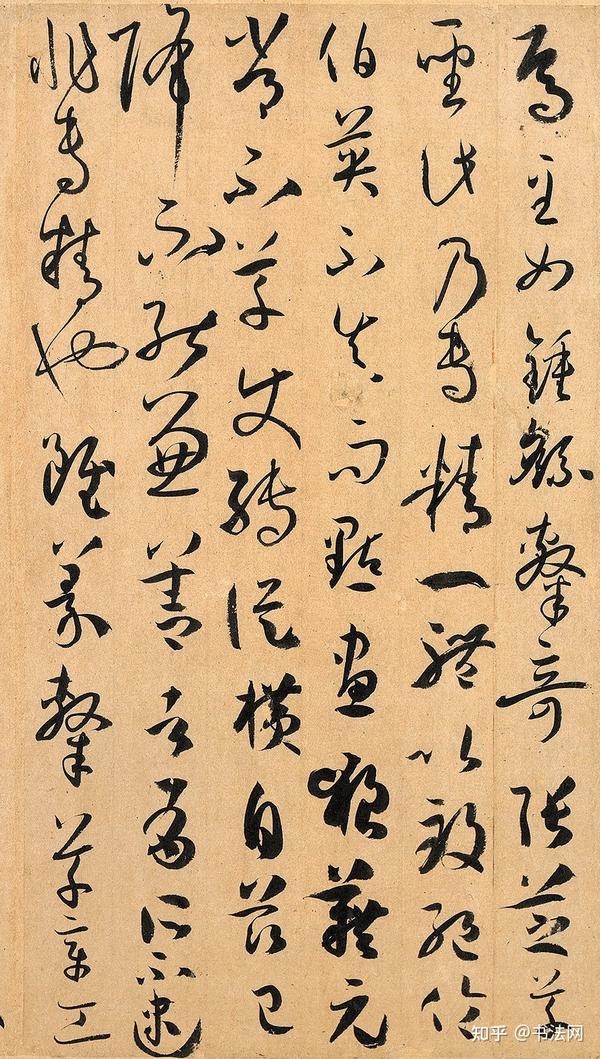 焉至如鍾繇隸奇張芝草
聖此乃專精一體以致絕倫
伯英不真而點畫狼藉元
常不草使轉縱橫自茲已
降不能兼善者有所不逮
非專精也雖篆隸草章工
知乎 @书法网